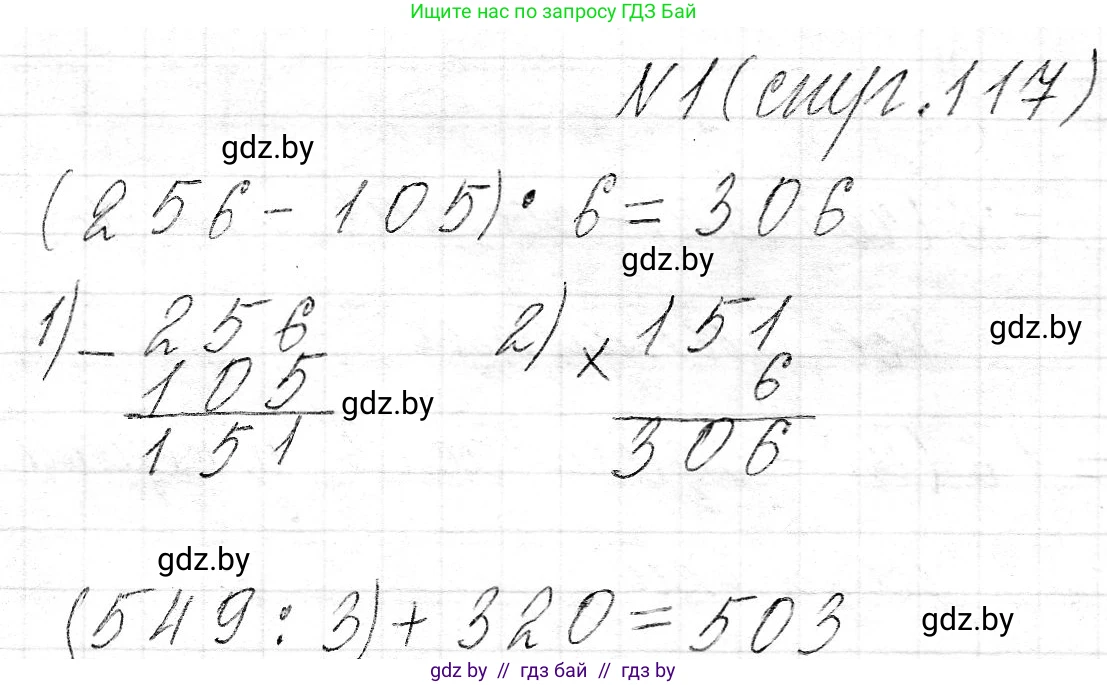 Ищите нас по запросу ГДЗ Бай
N1(стр.117)
gdz.by
(256-105)·6=306
gdz.by
1) - 256 2) × 151
gdz.by
105 6
gdz.by
151 306
gdz.by
(549:3)+320=503
gdz.by
gdz.by // гдз бай // гдз by